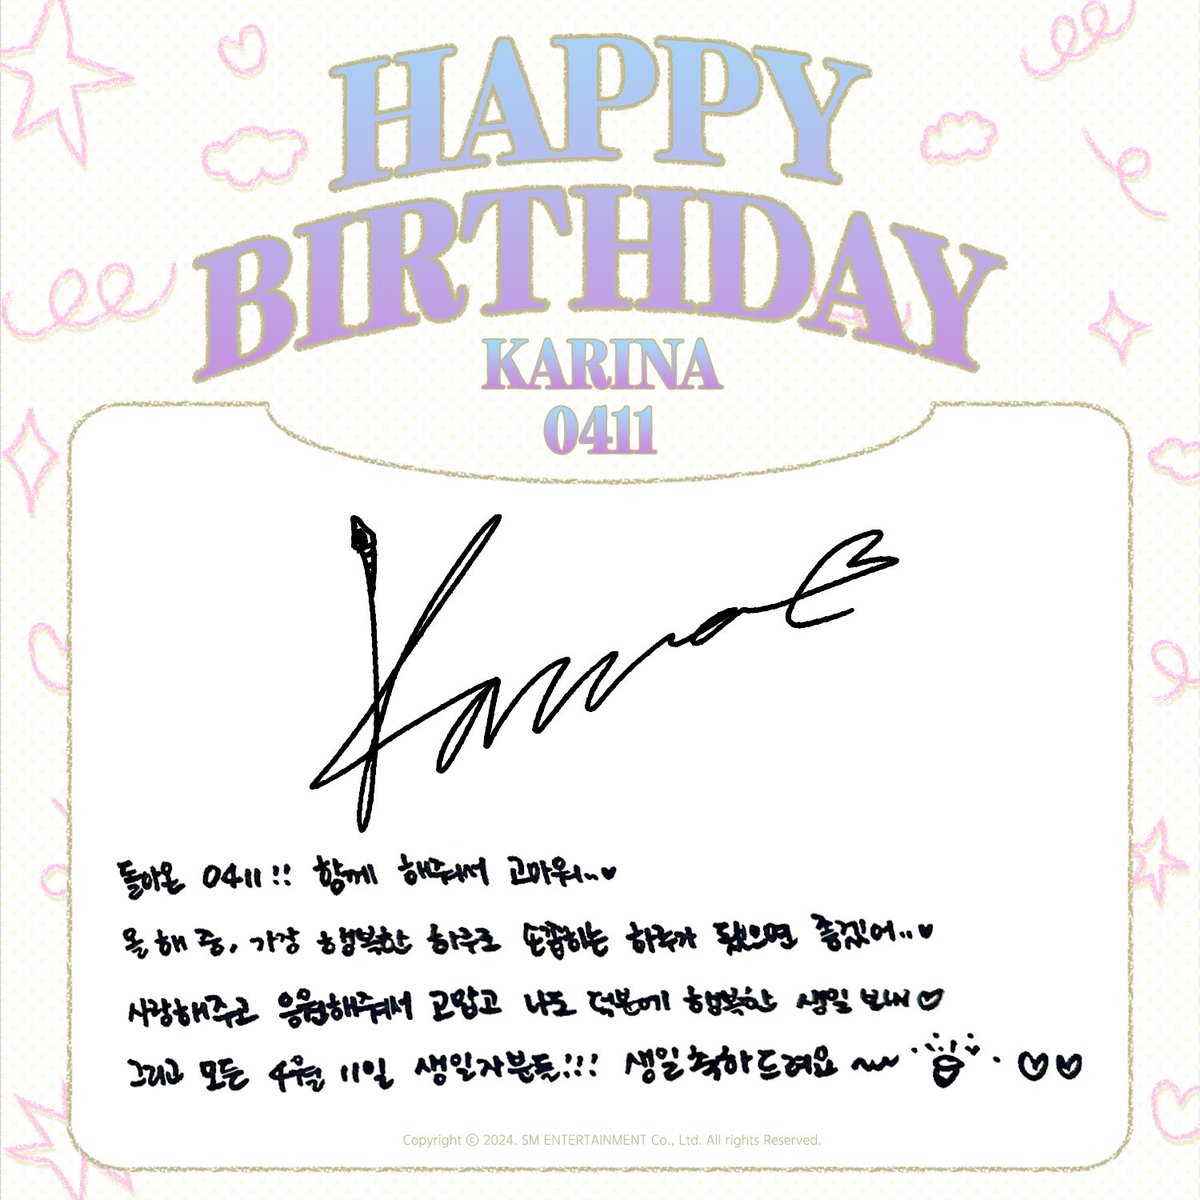 HAPPY
BIRTHDAY
KARINA
0411
Karina
돌아온 0411!! 함께 해줘서 고마워..♥
올해 중, 가장 행복한 하루로 손꼽히는 하루가 됐으면 좋겠어..♥
사랑해주고 응원해줘서 고맙고 나도 덕분에 행복한 생일 보내♡
그리고 모든 4월 11일 생일자분들!!! 생일축하드려요 ~ ♡♡
Copyright ⓒ 2024. SM ENTERTAINMENT Co., Ltd. All rights Reserved.